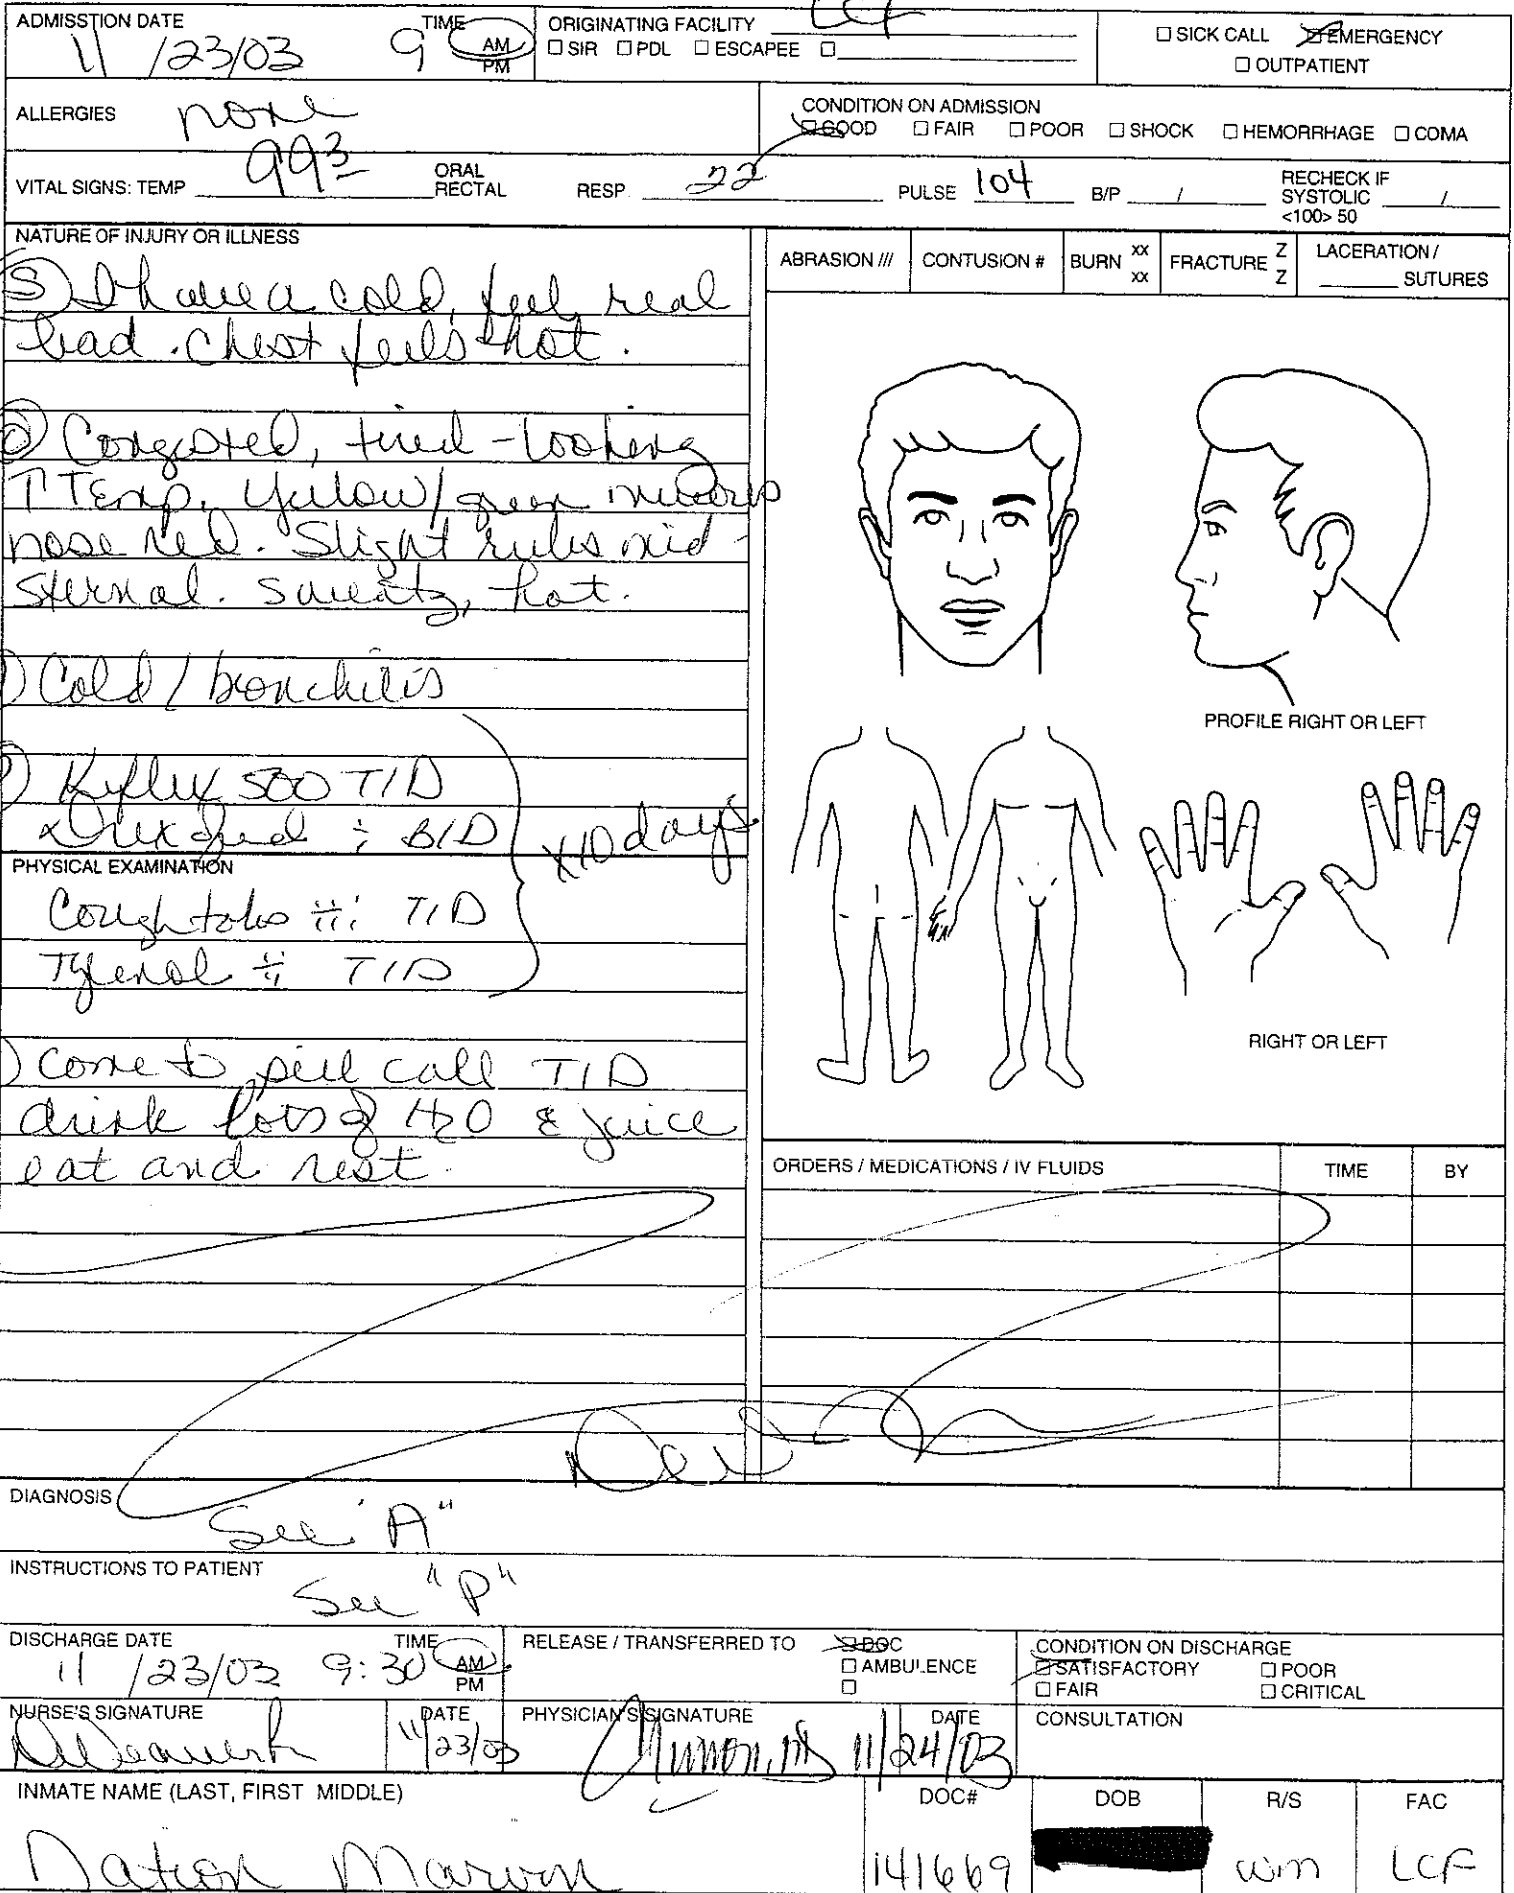 ADMISSTION DATE TIME AM PM
11 /23/03 9
ORIGINATING FACILITY LCF
☐ SIR ☐ PDL ☐ ESCAPEE ☐
☐ SICK CALL ☒ EMERGENCY
☐ OUTPATIENT
ALLERGIES none
CONDITION ON ADMISSION
☒ GOOD ☐ FAIR ☐ POOR ☐ SHOCK ☐ HEMORRHAGE ☐ COMA
VITAL SIGNS: TEMP 99³ ORAL RECTAL RESP 22 PULSE 104 B/P / RECHECK IF SYSTOLIC <100> 50 /
NATURE OF INJURY OR ILLNESS
(S) I have a cold, feel real
bad. Chest feels hot.
(O) Congested, tired-looking
↑ Temp. Yellow/green mucous
nose red. Slight rales mid-
sternal. Sweaty, hot.
) Cold / bronchitis
) Keflex 500 TID
BID
x10 days
PHYSICAL EXAMINATION
Cough tabs iii TID
Tylenol ii TID
) Come to pill call TID
drink lots of H2O & juice
eat and rest.
ABRASION /// CONTUSION # BURN xx xx FRACTURE Z Z LACERATION / SUTURES
PROFILE RIGHT OR LEFT
RIGHT OR LEFT
ORDERS / MEDICATIONS / IV FLUIDS TIME BY
DIAGNOSIS
See "A"
INSTRUCTIONS TO PATIENT
See "P"
DISCHARGE DATE TIME AM PM
11 /23/03 9:30
RELEASE / TRANSFERRED TO ☒ DOC
☐ AMBULENCE
☐
CONDITION ON DISCHARGE
☒ SATISFACTORY ☐ POOR
☐ FAIR ☐ CRITICAL
NURSE'S SIGNATURE DATE
11/23/03
PHYSICIAN'S SIGNATURE DATE
11/24/03
CONSULTATION
INMATE NAME (LAST, FIRST MIDDLE) DOC# DOB R/S FAC
Nation Marvin 141669 wm LCF